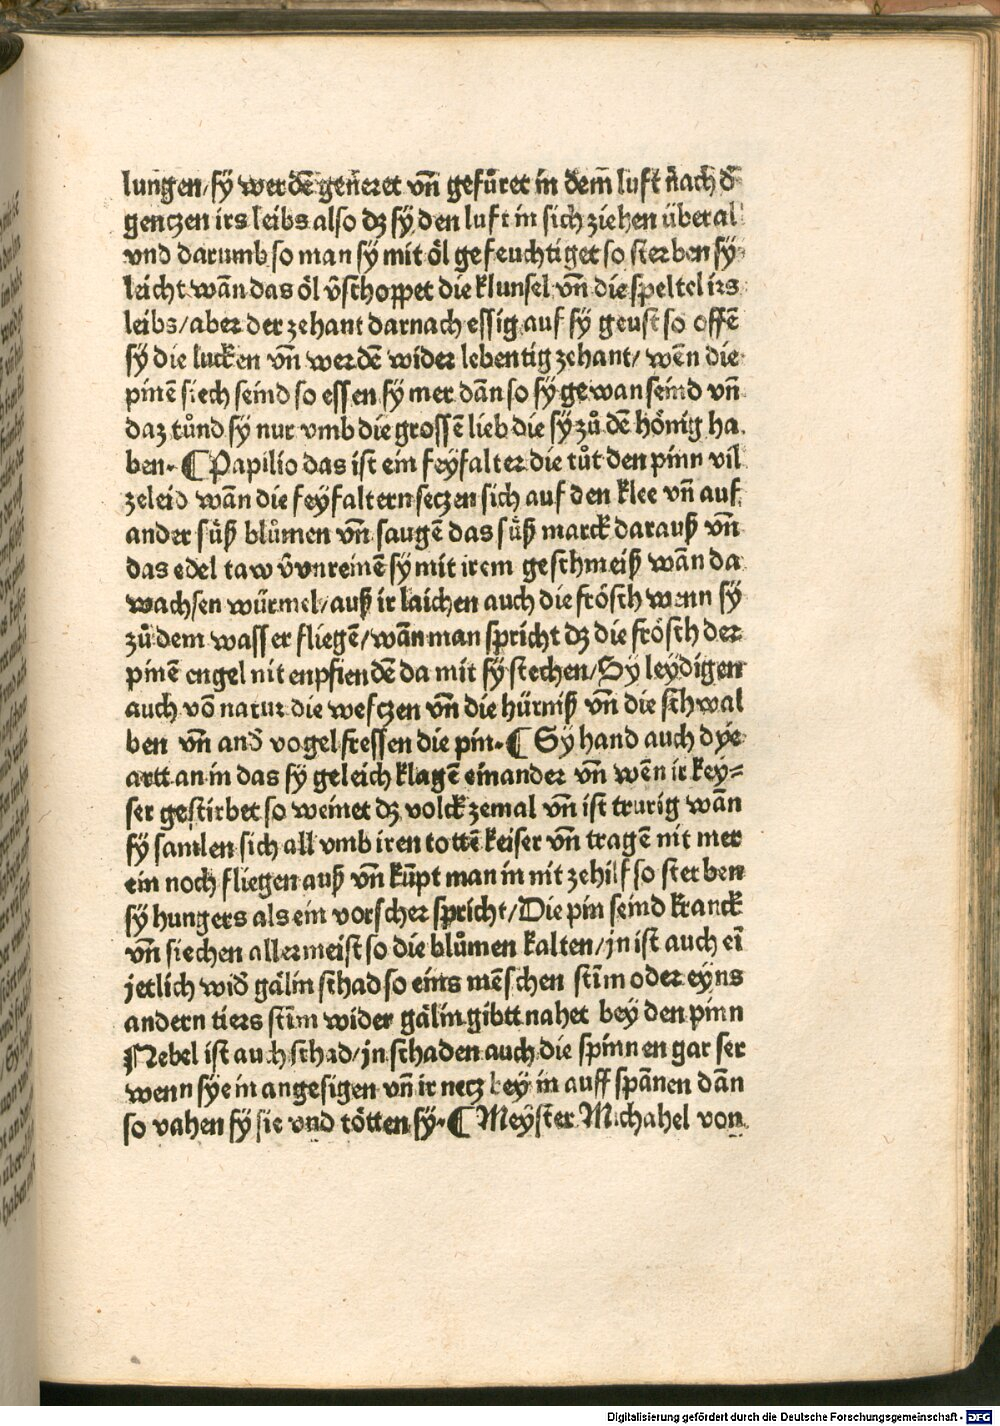 lungen/sÿ werdē generet vn̄ gefůret in dem̄ luft nach d̄
genczen irs leibs also dz sÿ den luft in sich ziehen überal
vnd darumb so man sÿ mit öl gefeuchtiget so sterben sÿ
leicht wān das öl v̄schoppet die klunsel vn̄ die speltel irs
leibs/aber der zehant darnach essig auf sÿ geust so offē
sÿ die lucken vn̄ werdē wider lebentig zehant/ wēn die
pinē siech seind so essen sÿ mer dān so sÿ gewan seind vn̄
daz tůnd sÿ nur vmb die grossē lieb die sÿ zů dē hönig ha
ben. ¶ Papilio das ist ein feÿfalter die tůt den pinn vil
zeleid wān die feÿfaltern seczen sich auf den klee vn̄ auf
ander süß blůmen vn̄ saugē das süß marck darauß vn̄
das edel taw v̄vnreinē sÿ mit irem geschmeiß wān da
wachsen würmel/auß ir laichen auch die frösch wenn sÿ
zů dem wasser fliegē/wān man spricht dz die frösch der
pinē engel nit enpfiendē da mit sÿ stechen/Sÿ leÿdigen
auch vō natur die wefczen vn̄ die hürniß vn̄ die schwal
ben vn̄ and̄ vogel fressen die pin. ¶ Sÿ hand auch dÿe
artt an in das sÿ geleich klagē einander vn̄ wēn ir keÿ=
ser gestirbet so weinet dz volck zemal vn̄ ist trurig wān
sÿ samlen sich all vmb iren tottē keiser vn̄ tragē nit mer
ein noch fliegen auß vn̄ kūpt man in nit zehilf so sterben
sÿ hungers als ein vorscher spricht/Die pin seind kranck
vn̄ siechen allermeist so die blůmen kalten/jn ist auch eī
jetlich wid̄ gälin schad so eins mēschen stīm oder eyns
andern tiers stīm wider gälin gibtt nahet beÿ den pinn
Nebel ist auch schad/jn schaden auch die spinnen gar ser
wenn sÿe in angesigen vn̄ ir necz beÿ in auff spānen dān
so vahen sÿ sie vnd tötten sÿ. ¶ Meÿster Michahel von
Digitalisierung gefördert durch die Deutsche Forschungsgemeinschaft - DFG